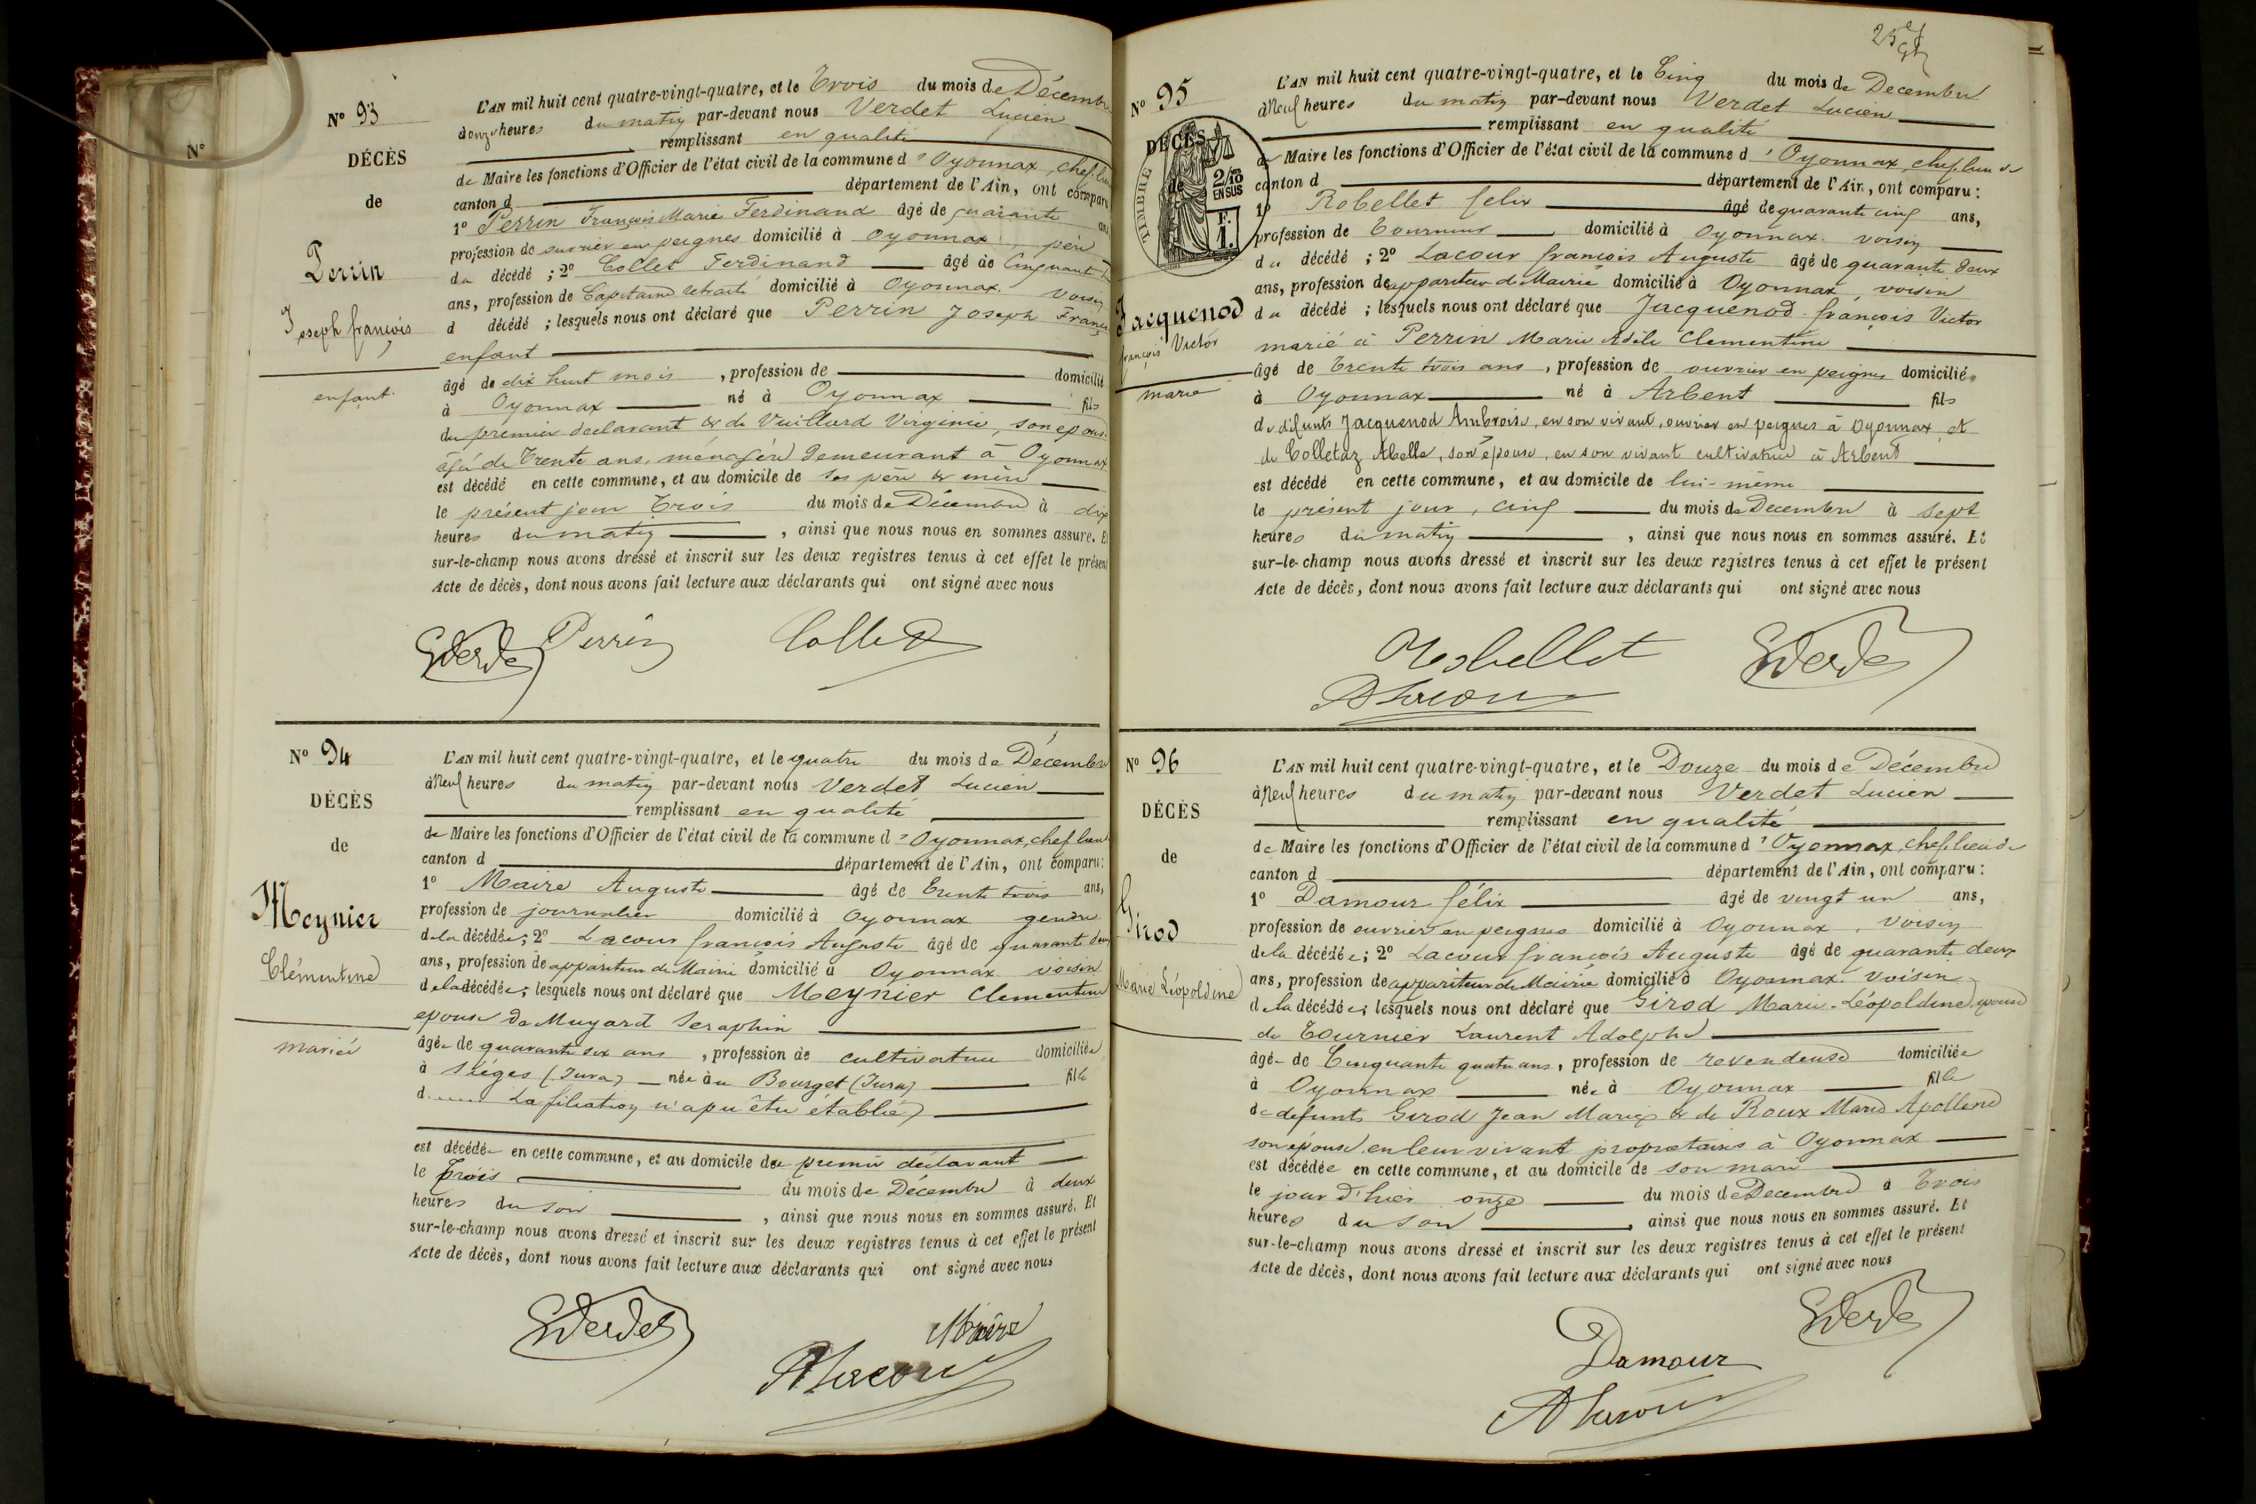 Nº 93
DÉCÈS
de
Perrin
Joseph françois
enfant
L'AN mil huit cent quatre-vingt-quatre, et le Trois du mois de Décembre
à onze heures du matin par-devant nous Verdet Lucien
remplissant en qualité
de Maire les fonctions d'Officier de l'état civil de la commune d'Oyonnax, chef lieu
canton d département de l'Ain, ont comparu
1º Perrin François Marie Ferdinand âgé de quarante ans
profession de ouvrier en peignes domicilié à Oyonnax, père
du décédé ; 2º Collet Ferdinand âgé de Cinquante
ans, profession de Capitaine retraité domicilié à Oyonnax. voisin
d décédé ; lesquels nous ont déclaré que Perrin Joseph François
enfant
âgé de dix huit mois , profession de domicilié
à Oyonnax né à Oyonnax fils
du premier déclarant & de Vuillard Virginie, son épouse
âgée de Trente ans, ménagère demeurant à Oyonnax
est décédé en cette commune, et au domicile de ses père & mère
le présent jour Trois du mois de Décembre à dix
heures du matin , ainsi que nous nous en sommes assuré. Et
sur-le-champ nous avons dressé et inscrit sur les deux registres tenus à cet effet le présent
Acte de décès, dont nous avons fait lecture aux déclarants qui ont signé avec nous
Verdet Perrin Collet
Nº 94
DÉCÈS
de
Meynier
Clémentine
mariée
L'AN mil huit cent quatre-vingt-quatre, et le quatre du mois de Décembre
à Neuf heures du matin par-devant nous Verdet Lucien
remplissant en qualité
de Maire les fonctions d'Officier de l'état civil de la commune d'Oyonnax, chef lieu
canton d département de l'Ain, ont comparu :
1º Maire Auguste âgé de Trente trois ans,
profession de journalier domicilié à Oyonnax gendre
de la décédée ; 2º Lacour françois Auguste âgé de quarante deux
ans, profession de appariteur de Mairie domicilié à Oyonnax voisin
de la décédée ; lesquels nous ont déclaré que Meynier Clementine
epouse de Muyard Seraphin
âgée de quarante six ans , profession de cultivatrice domiciliée
à Siéges (Jura) née au Bourget (Jura) fille
d..... La filiation n'a pu être établie)
est décédée en cette commune, et au domicile du premier déclarant
le Trois du mois de Décembre à deux
heures du soir , ainsi que nous nous en sommes assuré. Et
sur-le-champ nous avons dressé et inscrit sur les deux registres tenus à cet effet le présent
Acte de décès, dont nous avons fait lecture aux déclarants qui ont signé avec nous
Verdet Maire
ALacour
Nº 95
DÉCÈS
de
TIMBRE
2/10
EN SUS
F.
1.
Jacquenod
françois Victor
marié
L'AN mil huit cent quatre-vingt-quatre, et le Cinq du mois de Decembre
à Neuf heures du matin par-devant nous Verdet Lucien
remplissant en qualité
de Maire les fonctions d'Officier de l'état civil de la commune d'Oyonnax, chef lieu de
canton d département de l'Ain, ont comparu :
1º Robellet felix âgé de quarante cinq ans,
profession de Tourneur domicilié à Oyonnax. voisin
du décédé ; 2º Lacour françois Auguste âgé de quarante deux
ans, profession de appariteur de Mairie domicilié à Oyonnax voisin
du décédé ; lesquels nous ont déclaré que Jacquenod françois Victor
marié à Perrin Marie Adèle Clementine
âgé de Trente trois ans , profession de ouvrier en peignes domicilié
à Oyonnax né à Arbent fils
de défunts Jacquenod Ambroise, en son vivant, ouvrier en peignes à Oyonnax et
de Colletaz Abelle, son épouse, en son vivant cultivatrice à Arbent
est décédé en cette commune, et au domicile de lui-même
le présent jour, cinq du mois de Decembre à sept
heures du matin , ainsi que nous nous en sommes assuré. Et
sur-le-champ nous avons dressé et inscrit sur les deux registres tenus à cet effet le présent
Acte de décès, dont nous avons fait lecture aux déclarants qui ont signé avec nous
Robellet Verdet
ALacour
Nº 96
DÉCÈS
de
Girod
Marie Léopoldine
L'AN mil huit cent quatre-vingt-quatre, et le Douze du mois de Décembre
à Neuf heures du matin par-devant nous Verdet Lucien
remplissant en qualité
de Maire les fonctions d'Officier de l'état civil de la commune d'Oyonnax, chef lieu de
canton d département de l'Ain, ont comparu :
1º Damour félix âgé de vingt un ans,
profession de ouvrier en peignes domicilié à Oyonnax, voisin
de la décédée ; 2º Lacour françois Auguste âgé de quarante deux
ans, profession de appariteur de Mairie domicilié à Oyonnax. Voisin
de la décédée ; lesquels nous ont déclaré que Girod Marie-Léopoldine épouse
de Tournier Laurent Adolphe
âgée de Cinquante quatre ans, profession de revendeuse domiciliée
à Oyonnax née à Oyonnax fille
de defunts Girod Jean Marie & de Roux Marie Apolline
son épouse en leur vivant propriétaires à Oyonnax
est décédée en cette commune, et au domicile de son mari
le jour d'hier onze du mois de Decembre à Trois
heures du soir , ainsi que nous nous en sommes assuré. Et
sur-le-champ nous avons dressé et inscrit sur les deux registres tenus à cet effet le présent
Acte de décès, dont nous avons fait lecture aux déclarants qui ont signé avec nous
Verdet
Damour
ALacour